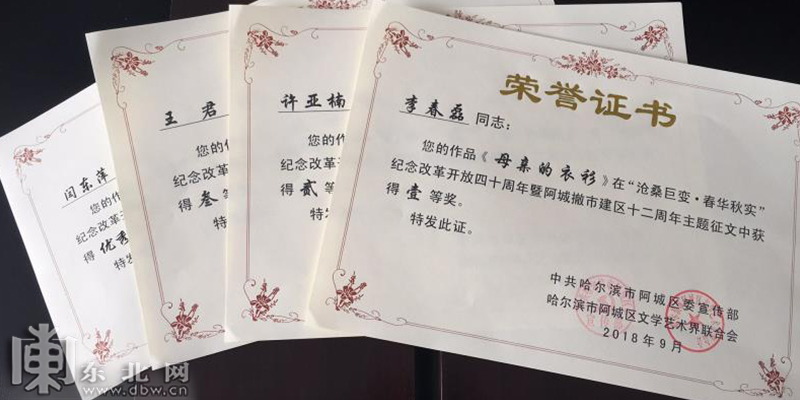 荣誉证书
李春磊 同志：
您的作品《母亲的衣衫》在“沧桑巨变·春华秋实”
纪念改革开放四十周年暨阿城撤市建区十二周年主题征文中获
得 壹 等奖。
特发此证。
中共哈尔滨市阿城区委宣传部
哈尔滨市阿城区文学艺术界联合会
2018年9月
许亚楠
您的作
纪念改革开
得 贰 等
特发
王 君
您的作
纪念改革开放
得 叁 等
特发
闫东萍
您的作
纪念改革开
得 优秀
特发
东北网
www.dbw.cn